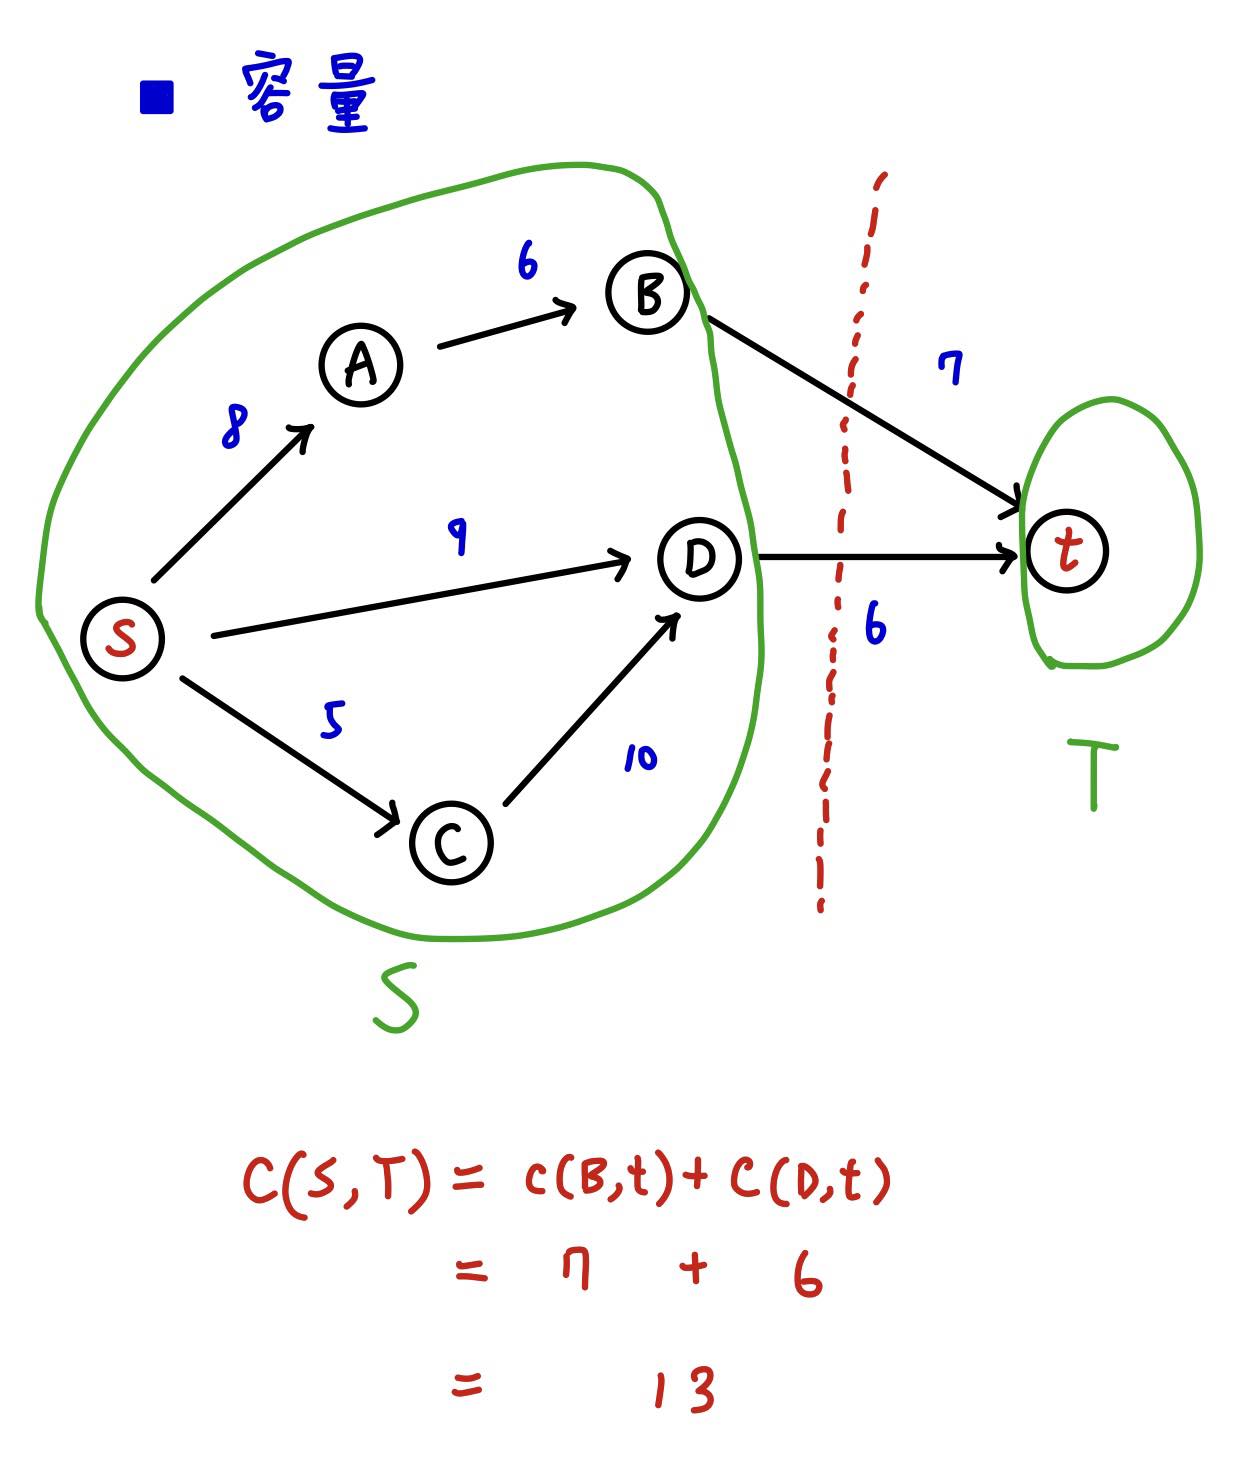 ■ 容量
6
B
A
7
8
9
D
t
S
6
5
10
C
T
S
C(S,T) = c(B,t) + C(D,t)
= 7 + 6
= 13